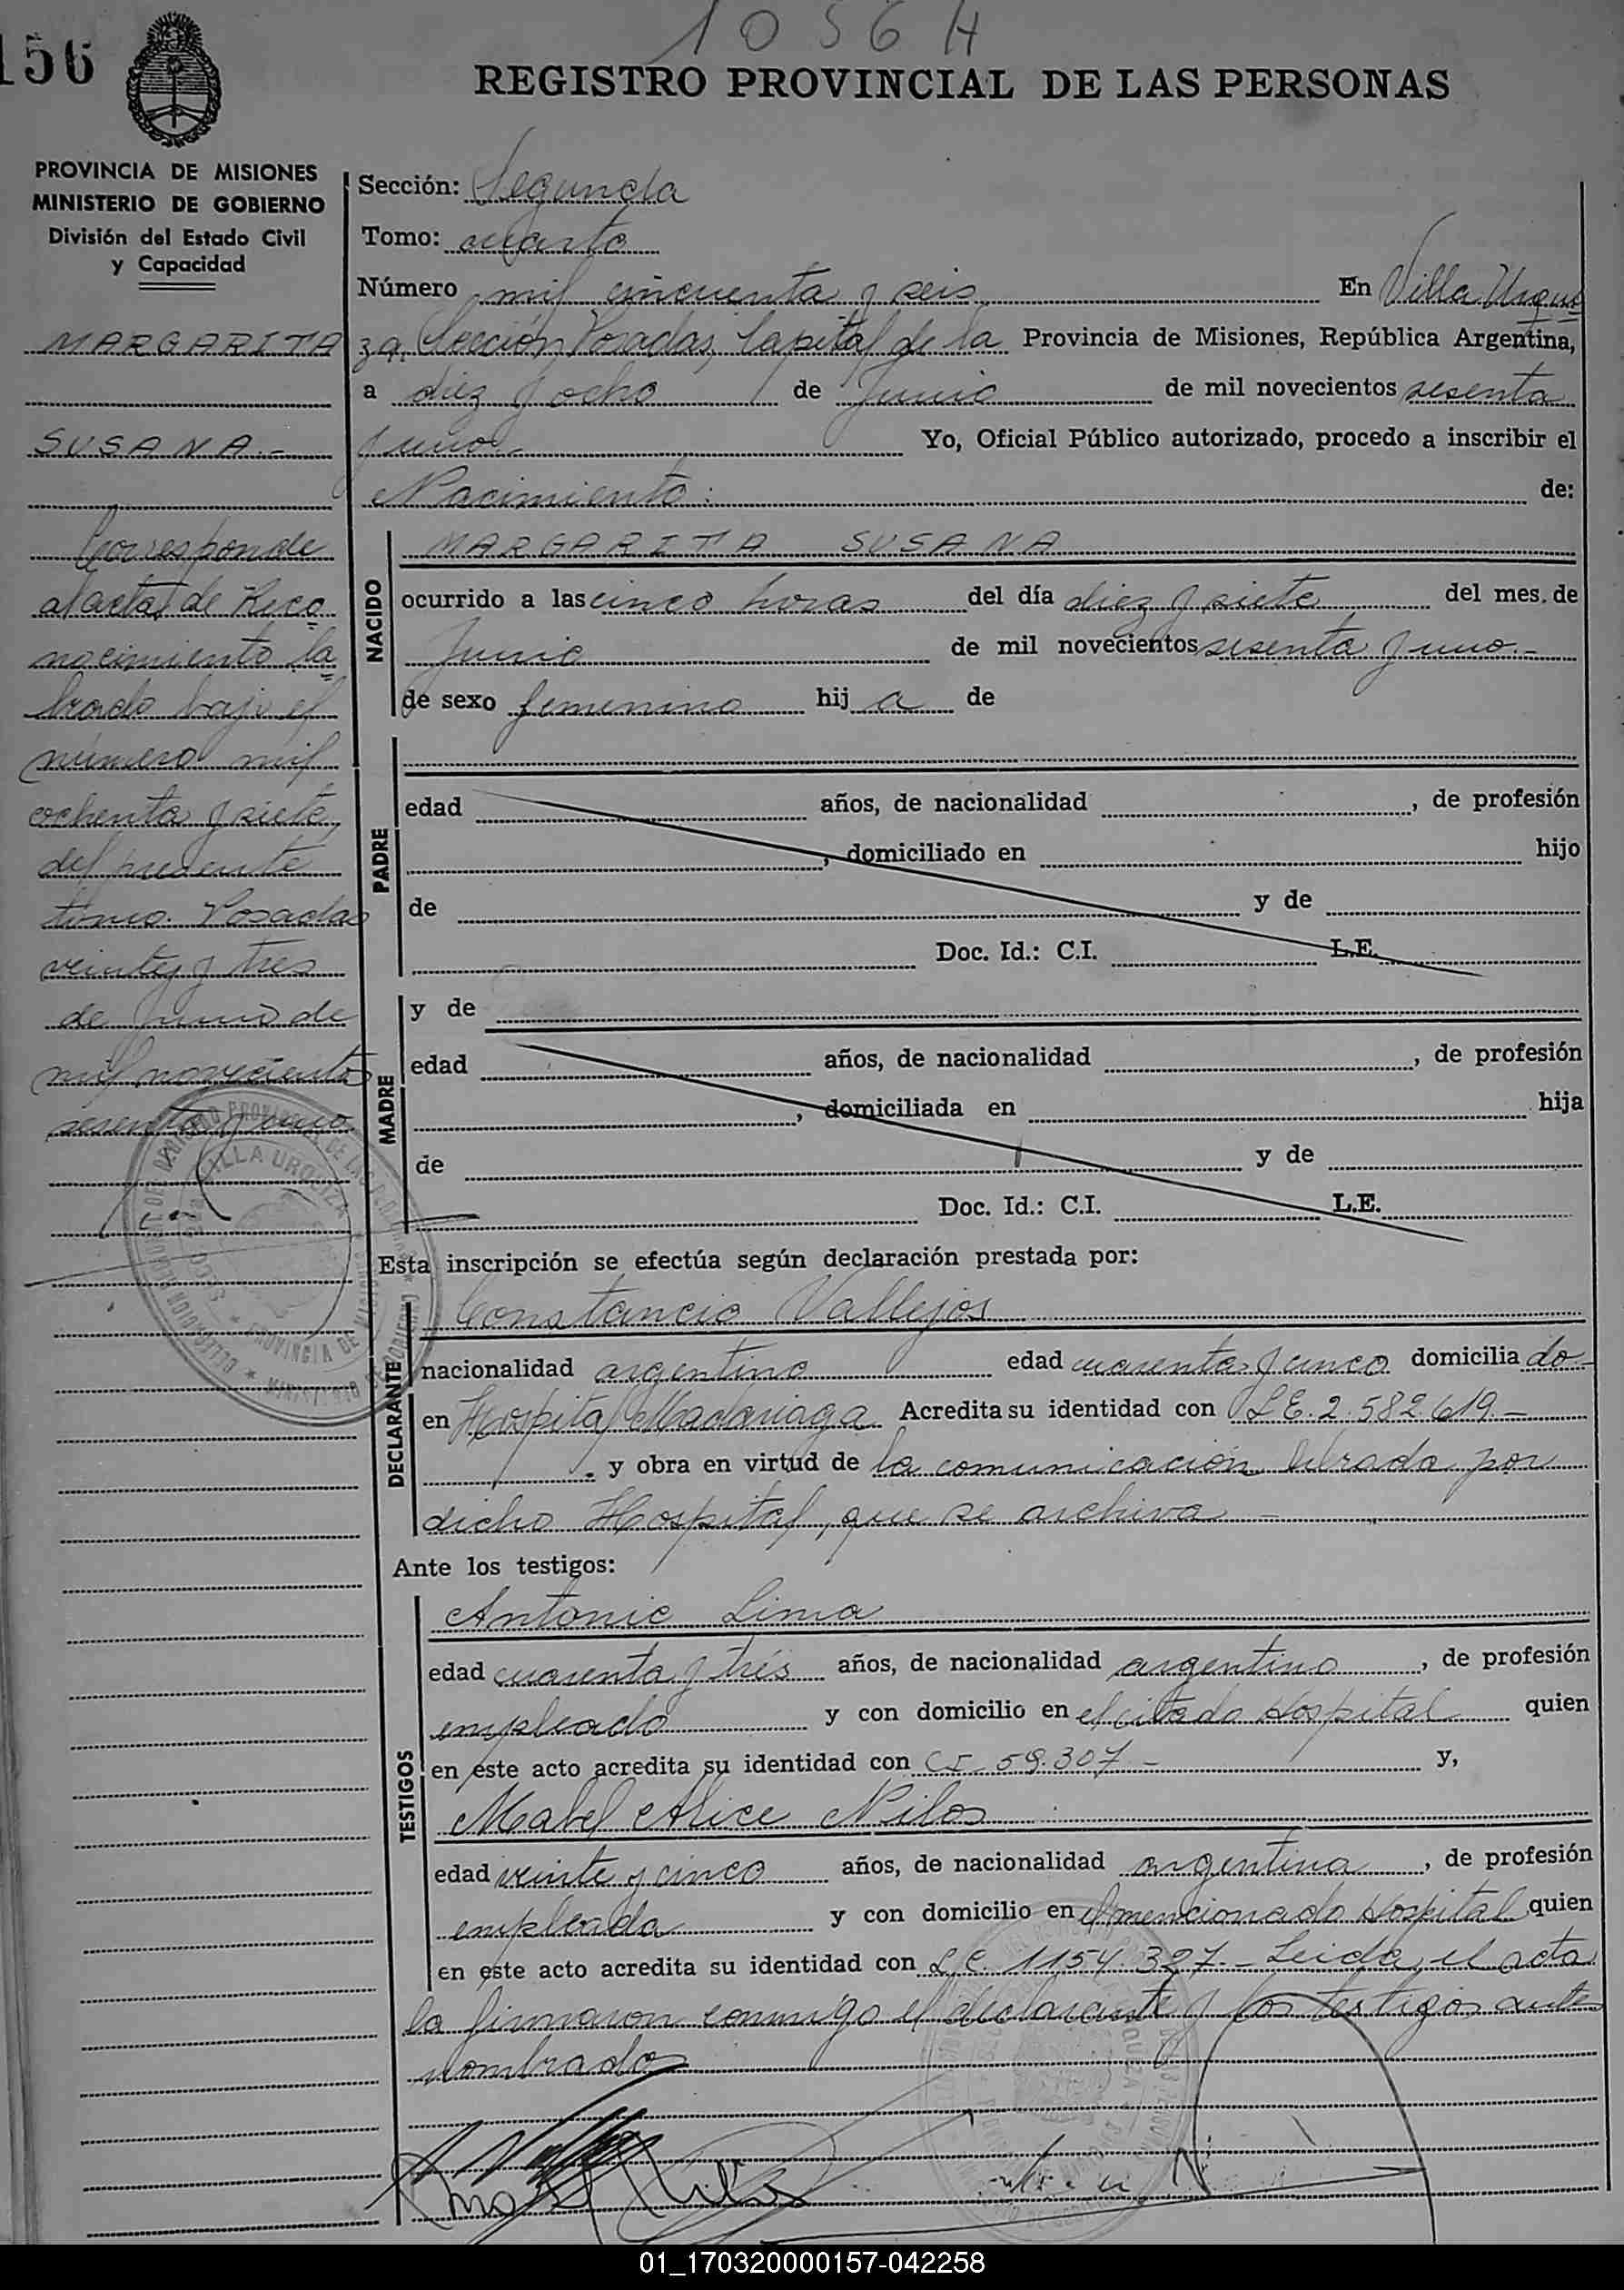 1056 H
156
REGISTRO PROVINCIAL DE LAS PERSONAS
PROVINCIA DE MISIONES
MINISTERIO DE GOBIERNO
División del Estado Civil
y Capacidad
MARGARITA
SUSANA.-
Corresponde
al acta de Reco
nocimiento la
brado bajo el
número mil
ochenta y siete
del presente
tomo. Posadas
veinte y tres
de Junio de
mil novecientos
sesenta y uno
Sección: Segunda
Tomo: cuarto
Número mil cincuenta y seis En Villa Urqui
za, Sección Posadas, Capital de la Provincia de Misiones, República Argentina,
a diez y ocho de Junio de mil novecientos sesenta
y uno.- Yo, Oficial Público autorizado, procedo a inscribir el
Nacimiento: de:
NACIDO
MARGARITA SUSANA
ocurrido a las cinco horas del día diez y siete del mes de
Junio de mil novecientos sesenta y uno.-
de sexo femenino hij a de
PADRE
edad años, de nacionalidad , de profesión
, domiciliado en hijo
de y de
Doc. Id.: C.I. L.E.
MADRE
y de
edad años, de nacionalidad , de profesión
, domiciliada en hija
de y de
Doc. Id.: C.I. L.E.
Esta inscripción se efectúa según declaración prestada por:
DECLARANTE
Constancio Vallejos
nacionalidad argentino edad cuarenta y cinco domicilia do-
en Hospital Madariaga Acredita su identidad con L E. 2.582.619.-
. y obra en virtud de la comunicación librada por
dicho Hospital, que se archiva -
Ante los testigos:
TESTIGOS
Antonio Lima
edad cuarenta y trés años, de nacionalidad argentino , de profesión
empleado y con domicilio en el citado Hospital quien
en este acto acredita su identidad con C I. 59.307 - y,
Mabel Alice Nilos
edad veinte y cinco años, de nacionalidad argentina , de profesión
empleada y con domicilio en el mencionado Hospital quien
en este acto acredita su identidad con L.C. 1154.327.- Leida el acta
la firmaron conmigo el declarante y los testigos ante
nombrados
VILLA URQUIZA
01_170320000157-042258